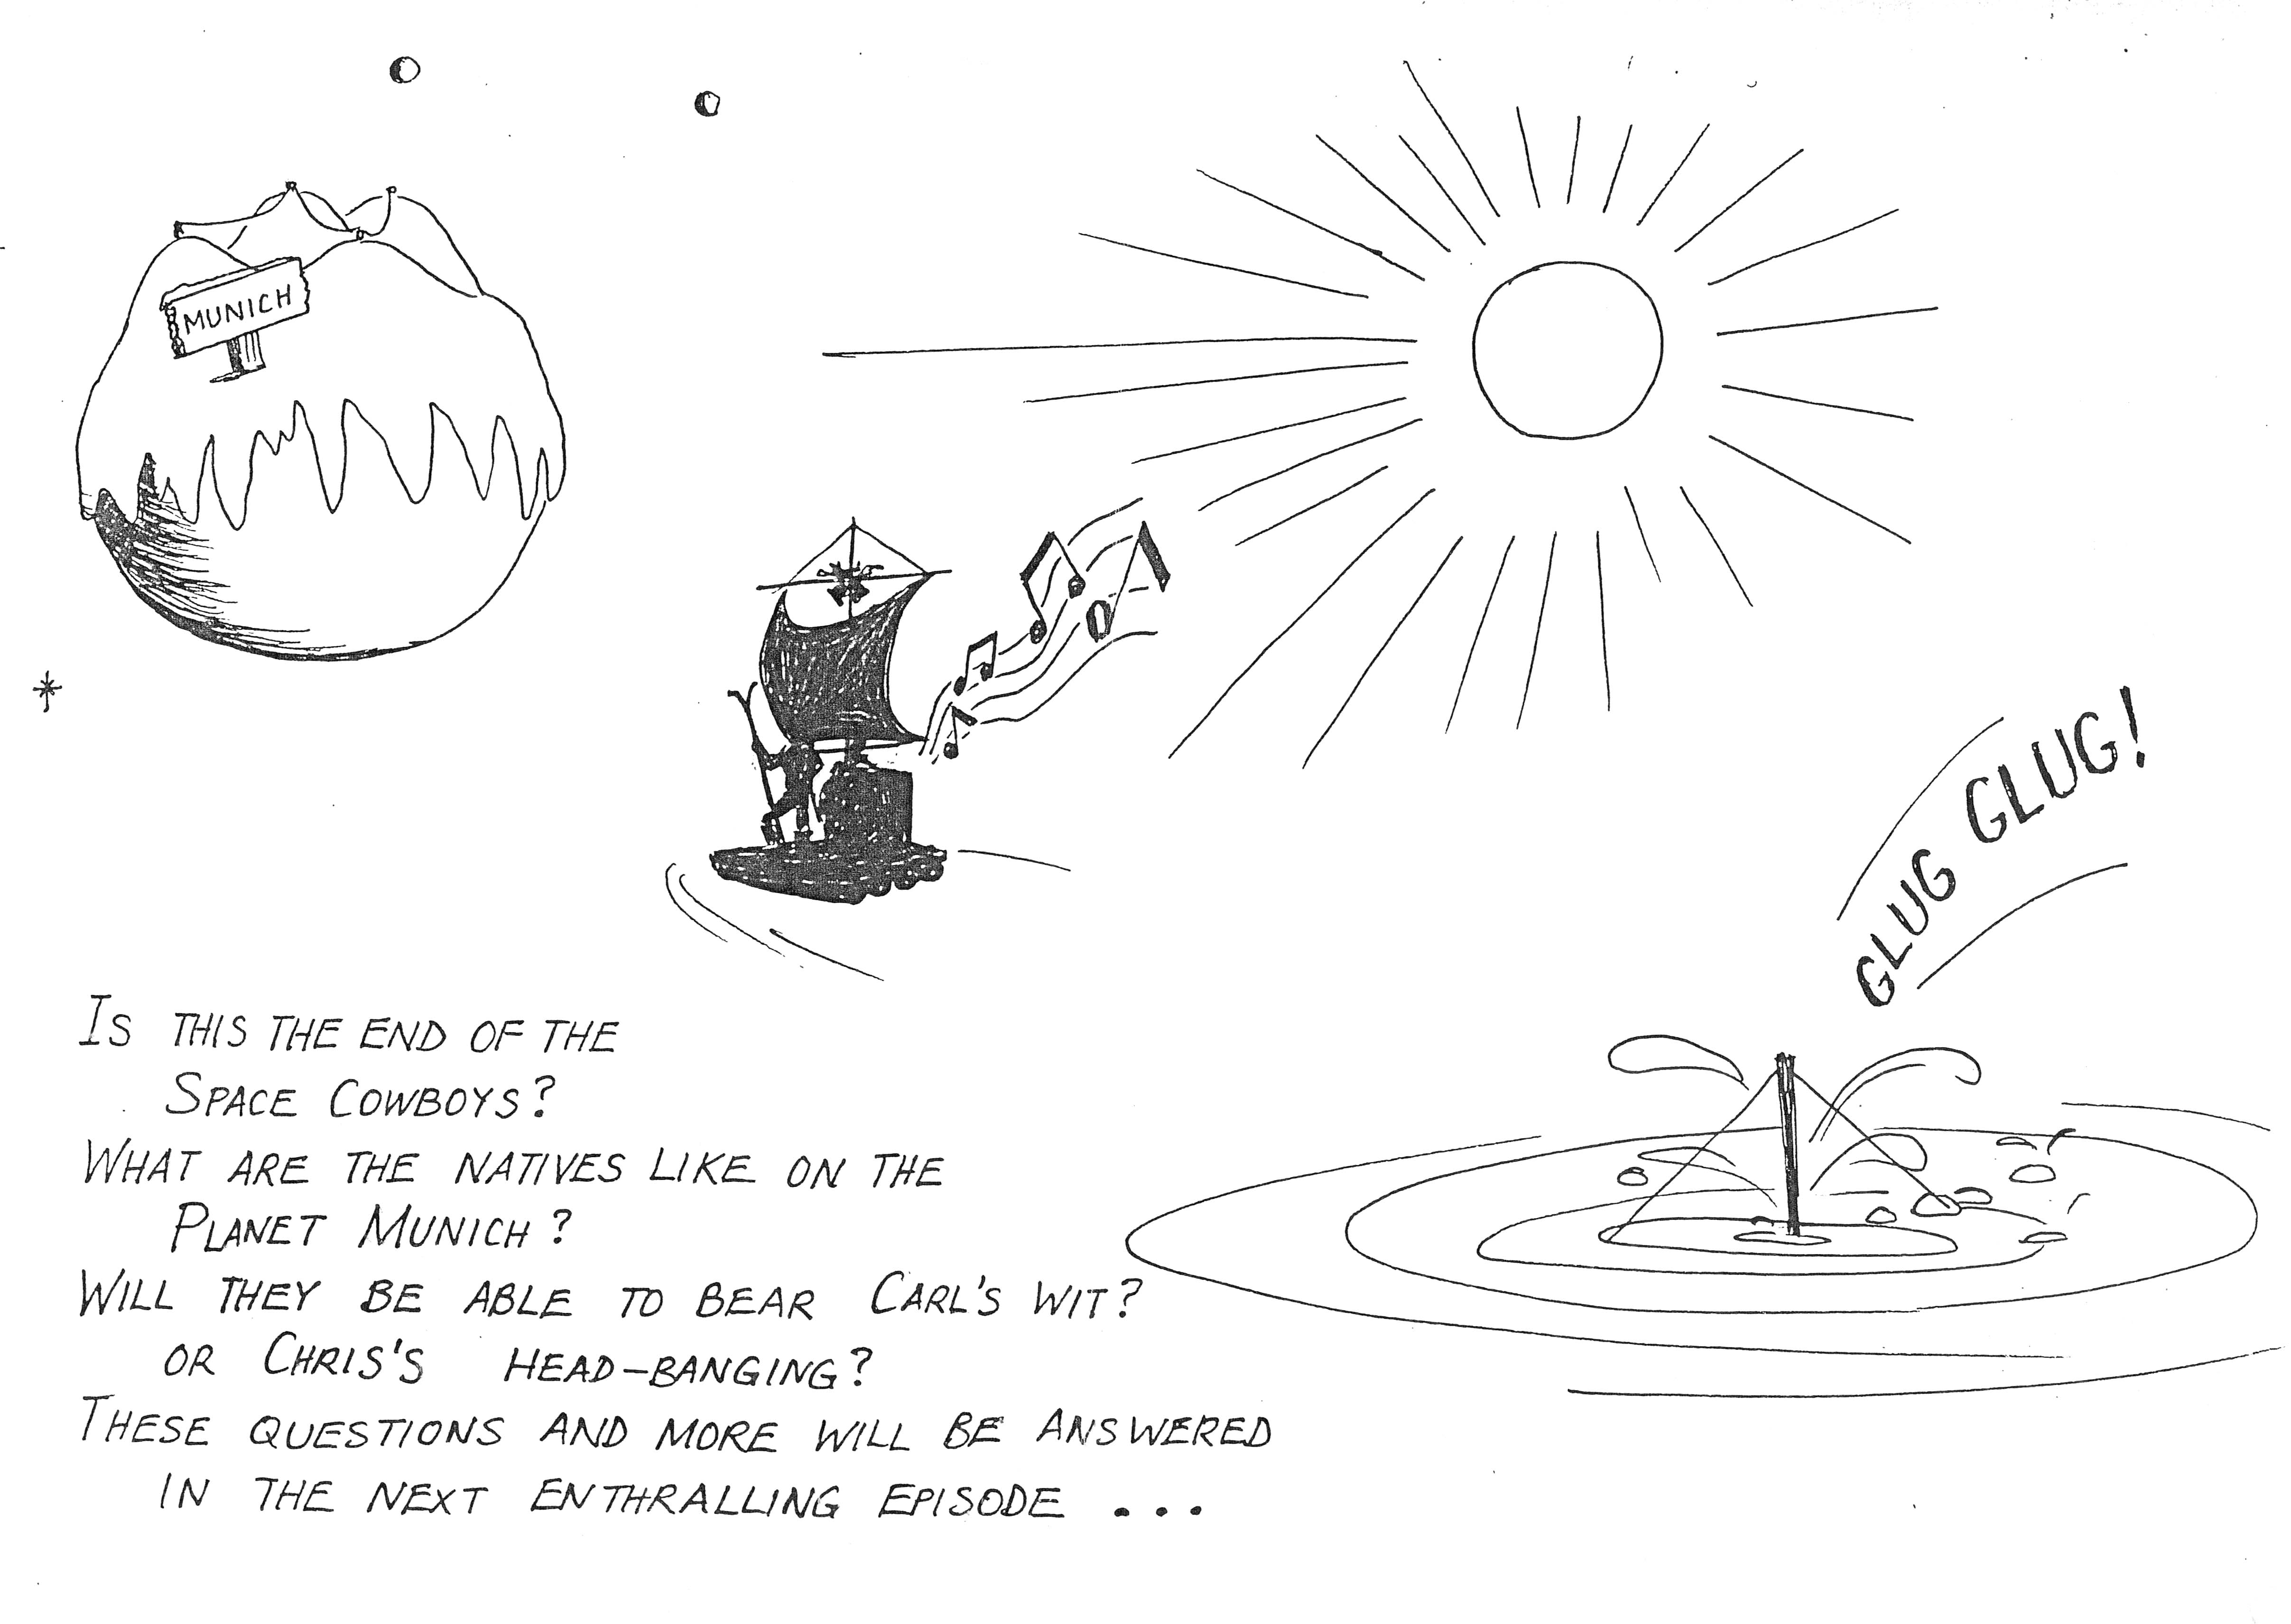 MUNICH
GLUG GLUG!
IS THIS THE END OF THE
SPACE COWBOYS?
WHAT ARE THE NATIVES LIKE ON THE
PLANET MUNICH?
WILL THEY BE ABLE TO BEAR CARL'S WIT?
OR CHRIS'S HEAD-BANGING?
THESE QUESTIONS AND MORE WILL BE ANSWERED
IN THE NEXT ENTHRALLING EPISODE ...